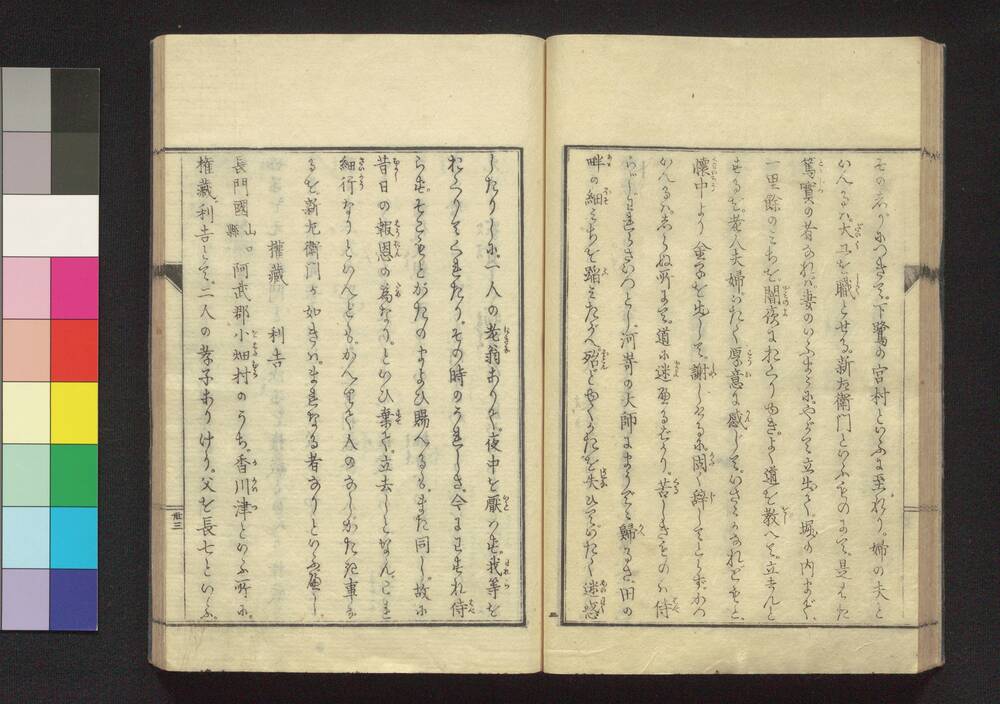 その志かにつきて、下鷺の宮村といふに至れり。婦の夫と
いへるハ、大工を職とせる。新左衛門といふものにて。是もまた
篤實の者なれバ、妻のいふまゝに、やがて立出て。堀の内まで、
一里餘のみちを闇夜におくりゆき。よく道を教へて、立去んと
せるを。老人夫婦いたく厚意に感じて。いさゝかなれどもと、
懐中より金子を出して、謝しけるに、固く辞してとらず。かつ
いへるハ、志らぬ所にて、道に迷ふるばかり。苦しきものハ侍
らじ。それがしさいつころ、河崎の大師にまうでゝ歸るさ、田の
畔の細みちを蹈みたがへ。殆どゆくかたを失ひて。いたく迷惑
したりしに。一人の老翁ありて。夜中を厭はず。我等を
おくりてくれたり。その時のうれしさ、今にわすれ侍
らず。そこもとがたのまよひ賜へるも、また同し。故に
昔日の報恩の為なり。といひ棄て。立去しとなん。これ
細行なりといへども。かへりて人のなしがたき事なる
るを、新左衛門が如きハ、まれなる者なりといふべし。
權藏 利吉
長門國 山口縣 阿武郡小畑村のうち。香川津といふ所に。
權藏利吉とて。二人の孝子ありけり。父を長七といふ。
廿三